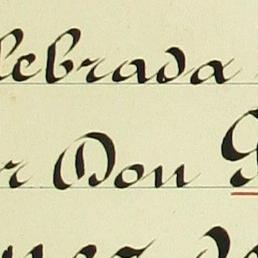 lebrada
r Don G